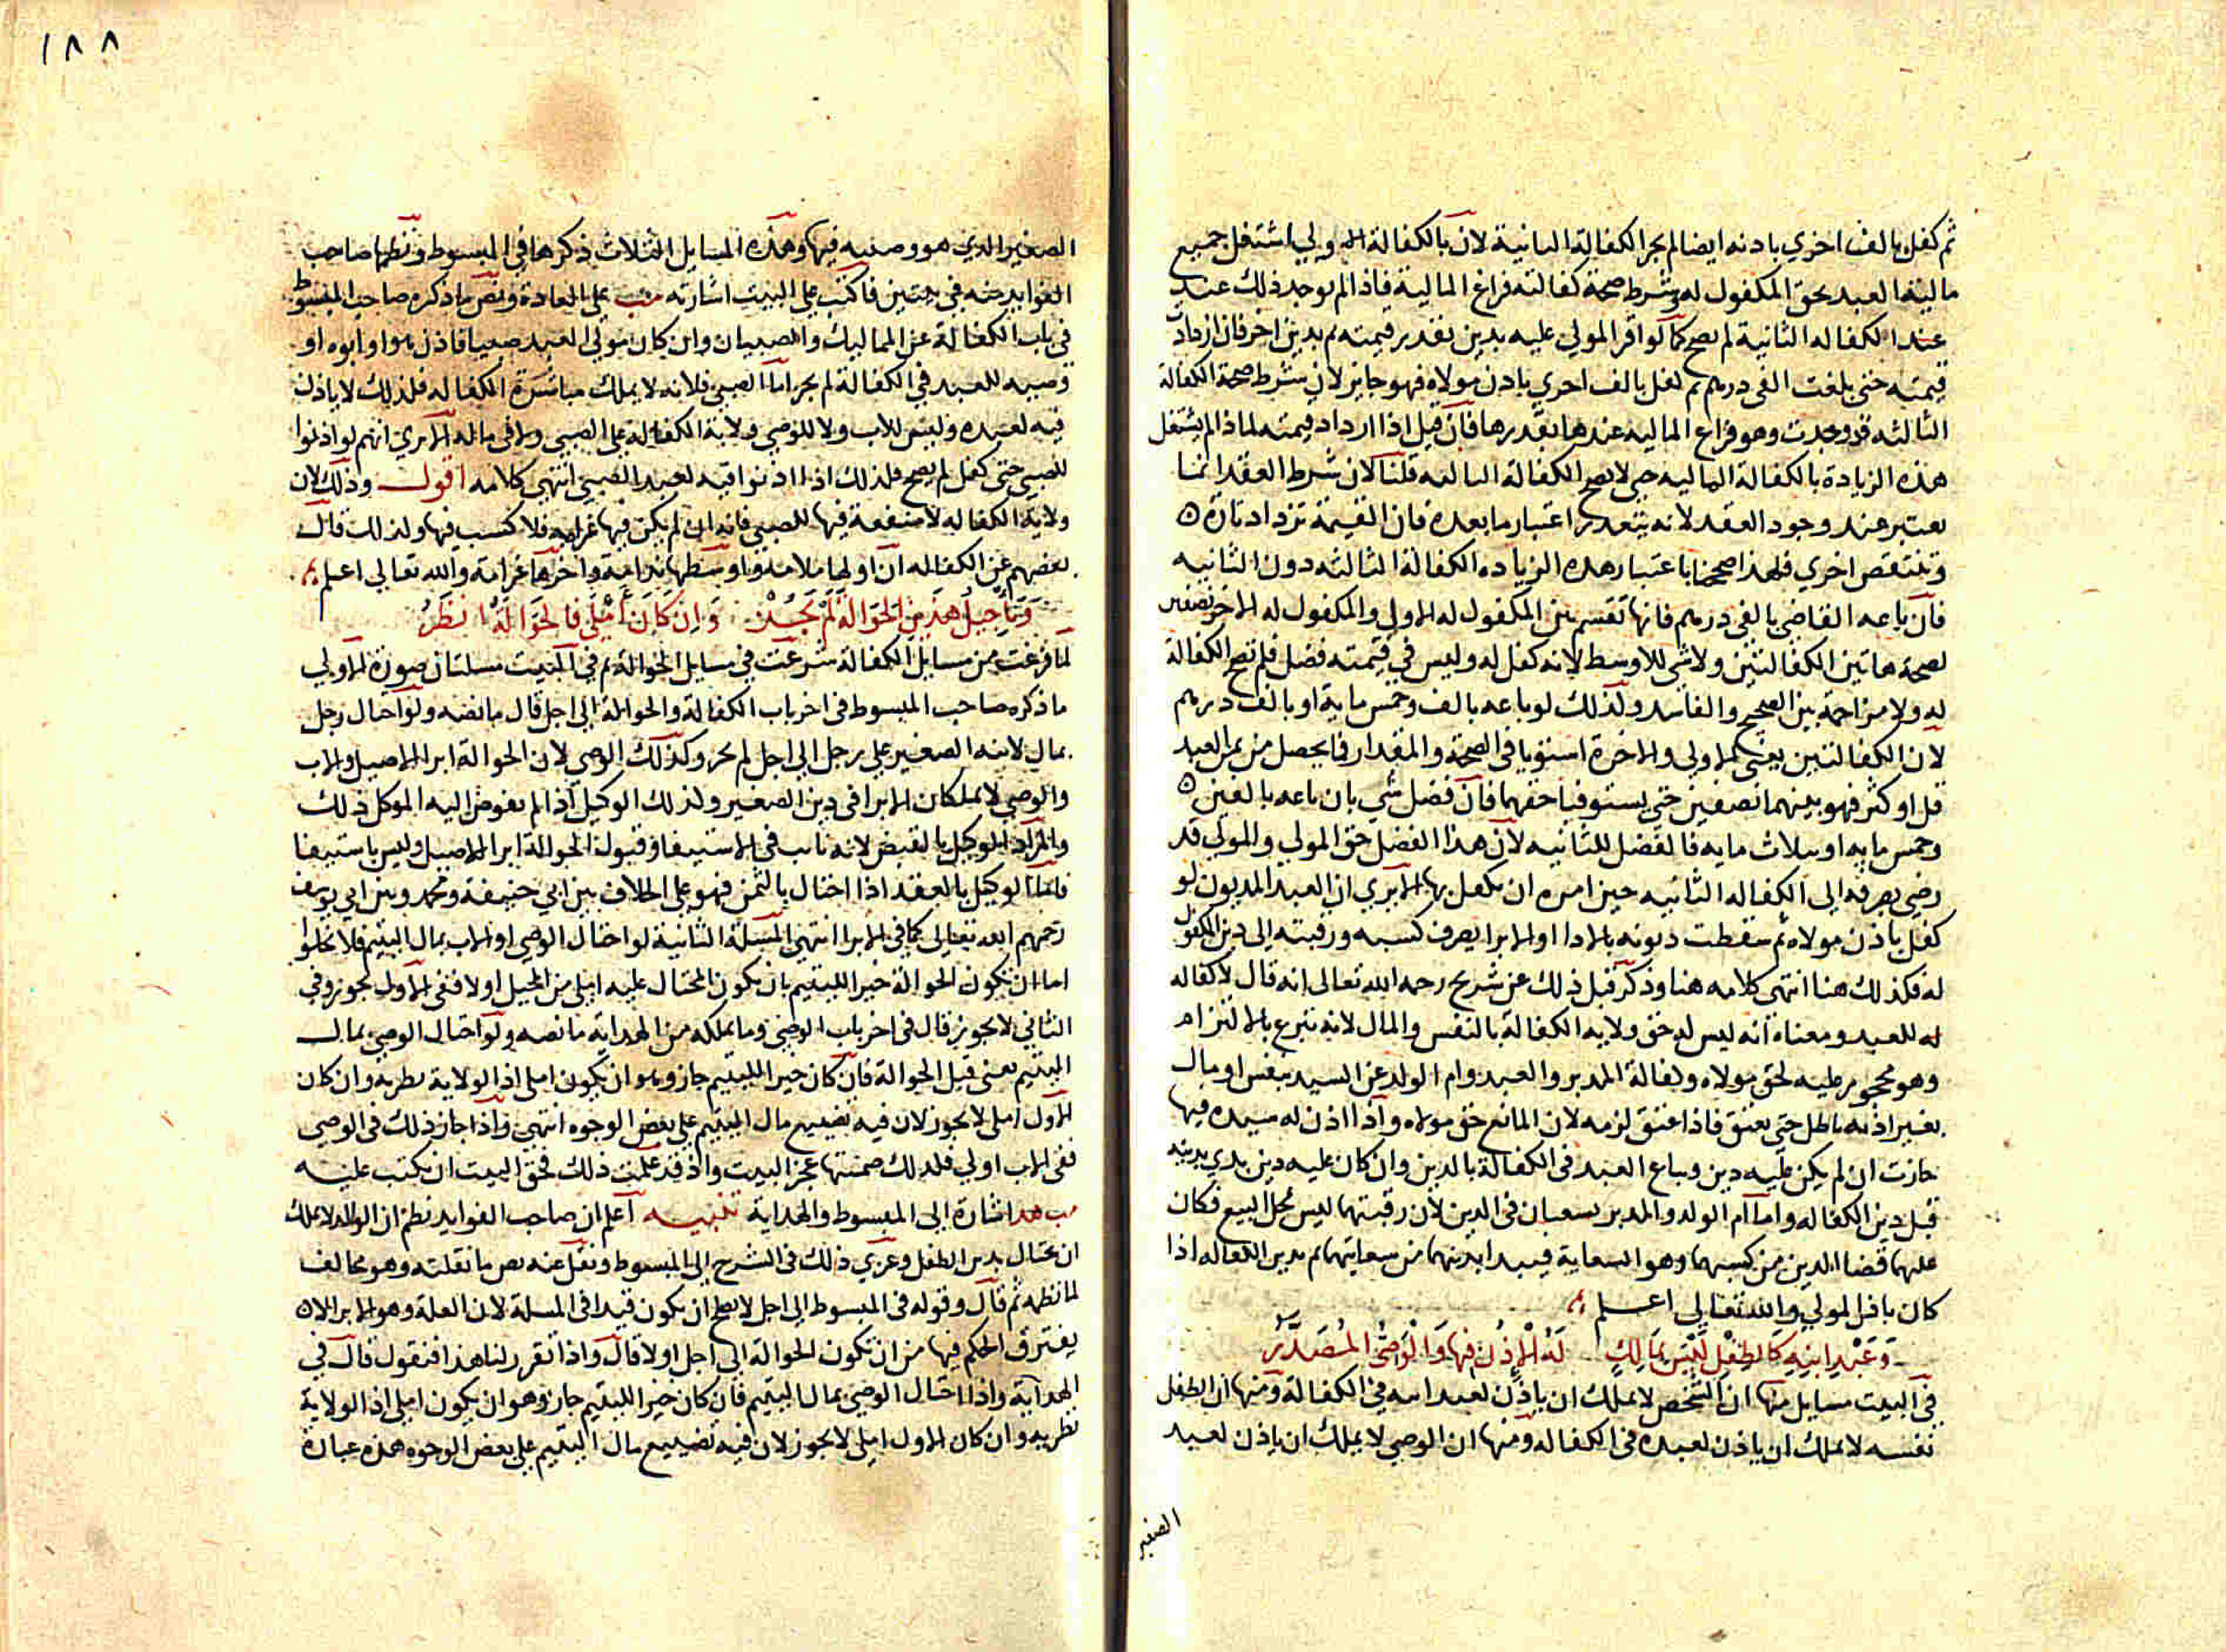 ثم كفل بالف اخري باذنه ايضا لم يجز الكفالة الثانية لان بالكفالة الاولي اشتغل جميع
مالية العبد بحق المكفول له وشرط صحة كفالته فراغ المالية فاذا لم يوجد ذلك عند
عند الكفاله الثانية لم يصح كما لو اقر المولي عليه بدين بقدر قيمته ثم بدين اخر فان ازدادت
قيمته حتى بلغت الفى درهم ثم كفل بالف اخري باذن مولاه فهو جايز لان شرط صحة الكفالة
الثالثه قد وجدت وهو فراغ الماليه عندها بقدرها فان قيل اذا ازداد قيمته لماذا لم يشتغل
هذه الزيادة بالكفالة الماليه حتى لا يصح الكفالة الثالثه قلنا لان شرط العقد انما
يعتبر عند وجود العقد لانه يتعذر اعتبار ما بعده فان القيمة تزداد تارة
وتنتقص اخري فلهذا صححنا باعتبار هذه الزياده الكفالة الثالثه دون الثانيه
فان باعه القاضي بالفى درهم فانها تقسم بين المكفول له الاول والمكفول له الاخر نصفين
لصحة هاتين الكفالتين ولا شي للاوسط لانه كفل له وليس في قيمته فضل فلم تصح الكفالة
له ولا مزاحمة بين الصحيح والفاسد وكذلك لو باعه بالف وخمس ماية او بالف درهم
لان الكفالتين يعني الاولي والاخرة استويا في الصحة والمقدار فما يحصل من ثمن العبد
قل او كثر فهو بينهما نصفين حتي يستوفيا حقهما فان فضل شي بان باعه بالفين
وخمس مايه او ثلاث مايه فالفضل للثانيه لان هذا الفضل حق المولي والمولي قد
رضي بصرفه الى الكفاله الثانيه حين امره ان يكفل بها الا يري ان العبد المديون لو
كفل باذن مولاه ثم سقطت ديونه بالادا او الابرا يصرف كسبه ورقبته الى دين المكفول
له فكذلك هنا انتهى كلامه هنا وذكر قبل ذلك عن شريح رحمه الله تعالى انه قال لا كفاله
له للعبد ومعناه انه ليس له حق ولاية الكفالة بالنفس والمال لانه تبرع بالالتزام
وهو محجور عليه لحق مولاه وكفالة المدبر والعبد وام الولد عن السيد بنفس او مال
بغير اذنه باطل حتى يعتق فاذا اعتق لزمه لان المانع حق مولاه واذا اذن له سيده فيها
جازت ان لم يكن عليه دين ويباع العبد في الكفالة بالدين وان كان عليه دين بدي بدينه
قبل دين الكفاله واما ام الولد والمدبر يسعيان في الدين لان رقبتهما ليس محل البيع فكان
عليهما قضا الدين من كسبهما وهو السعاية فيبدا بدينهما من سعايتهما ثم بدين الكفاله اذا
كان باذن المولي والله تعالى اعلم
وَعَبْدِ ابنِهِ كَالطِفْلِ لَيْسَ بمَالِكٍ لَهُ الاذن فيهَا وَالوَصِيُّ المُصَدَّرُ
في البيت مسايل منها ان الشخص لا يملك ان ياذن لعبد ابنه في الكفالة ومنها ان الطفل
نفسه لا يملك ان ياذن لعبده في الكفاله ومنها ان الوصي لا يملك ان ياذن لعبد
الصغير
١٨٨
الصغير الذي هو وصيه فيها وهذه المسايل الثلاث ذكرها في المبسوط ونظمها صاحب
الفوايد رحمه في بيتين فاكتب على البيت اشارته مب على العادة ونص ما ذكره صاحب المبسوط
في باب الكفالة عن المماليك والصبيان وان كان مولي العبد صبيا فاذن هو او ابوه او
وصيه للعبد في الكفالة لم يجز اما الصبي فلانه لا يملك مباشرة الكفاله فلذلك لا ياذن
فيه لعبده وليس للاب ولا للوصي ولاية الكفالة على الصبي ولا في ماله الا يري انهم لو اذنوا
للصبي حتى كفل لم يصح فلذلك اذا اذنوا فيه لعبد الصبي انتهى كلامه اقول وذلك لان
ولاية الكفاله لا منفعة فيها للصبي فانه ان لم يكن فيها غرامه فلا كسب فيها ولذلك قال
بعضهم عن الكفاله ان اولها ملامة واوسطها ندامة واخرها غرامة والله تعالى اعلم
وَتَاجِيلُ هَذِي الحَوَالَة لَمْ يَجُزْ وَاِن كَانَ أَمْلَى فَالحَوَالَةُ انظَرُ
لما فرغت من مسايل الكفالة شرعت في مسايل الحوالة ثم في البيت مسلتان صورة الاولي
ما ذكره صاحب المبسوط في اخر باب الكفالة والحوالة الى اجل قال ما نصه ولو احتال رجل
بمال لابنه الصغير على رجل الى اجل لم يجز وكذلك الوصي لان الحوالة ابرا الاصيل والاب
والوصي لا يملكان الابرا في دين الصغير وكذلك الوكيل اذا لم يفوض اليه الموكل ذلك
والمراد الوكيل بالقبض لانه نايب في الاستيفا وقبول الحوالة ابرا الاصيل وليس باستيفا
فاما الوكيل بالعقد اذا احتال بالثمن فهو على الخلاف بين ابي حنيفة ومحمد وبين ابي يوسف
رحمهم الله تعالى كما في الابرا انتهى المسلة الثانية لو احتال الوصي او الاب بمال اليتيم فلا يخلوا
اما ان يكون الحوالة خيرا لليتيم بان يكون المحتال عليه املى من المحيل او لا ففي الاول يجوز وفي
الثاني لا يجوز قال في اخر باب الوصي وما يملكه من الهداية ما نصه ولو احتال الوصي بمال
اليتيم يعني قبل الحوالة فان كان خيرا لليتيم جاز وهو ان يكون املى اذ الولاية نظريه وان كان
الاول املى لا يجوز لان فيه تضييع مال اليتيم على بعض الوجوه انتهى واذا جاز ذلك في الوصي
ففي الاب اولي فلذلك ضمنتها عجز البيت واذ قد علمت ذلك فحق البيت ان يكتب عليه
مب هد اشارة الى المبسوط والهداية تنبيه اعلم ان صاحب الفوايد نظم ان الوالد لا يملك
ان يحتال بدين الطفل وعزي ذلك في الشرح الى المبسوط ونقل عنه نص ما نقلته وهو مخالف
لما نظمه ثم قال وقوله في المبسوط الى اجل لا يصح ان يكون قيدا في المسلة لان العلة وهو الابرا لا
يفترق الحكم فيها من ان تكون الحوالة الى اجل او لا قال واذا تقرر لنا هذا فنقول قال في
الهداية واذا احتال الوصي بمال اليتيم فان كان خيرا لليتيم جاز وهو ان يكون املى اذ الولاية
نظريه وان كان الاول املى لا يجوز لان فيه تضييع مال اليتيم على بعض الوجوه هذه عبارة